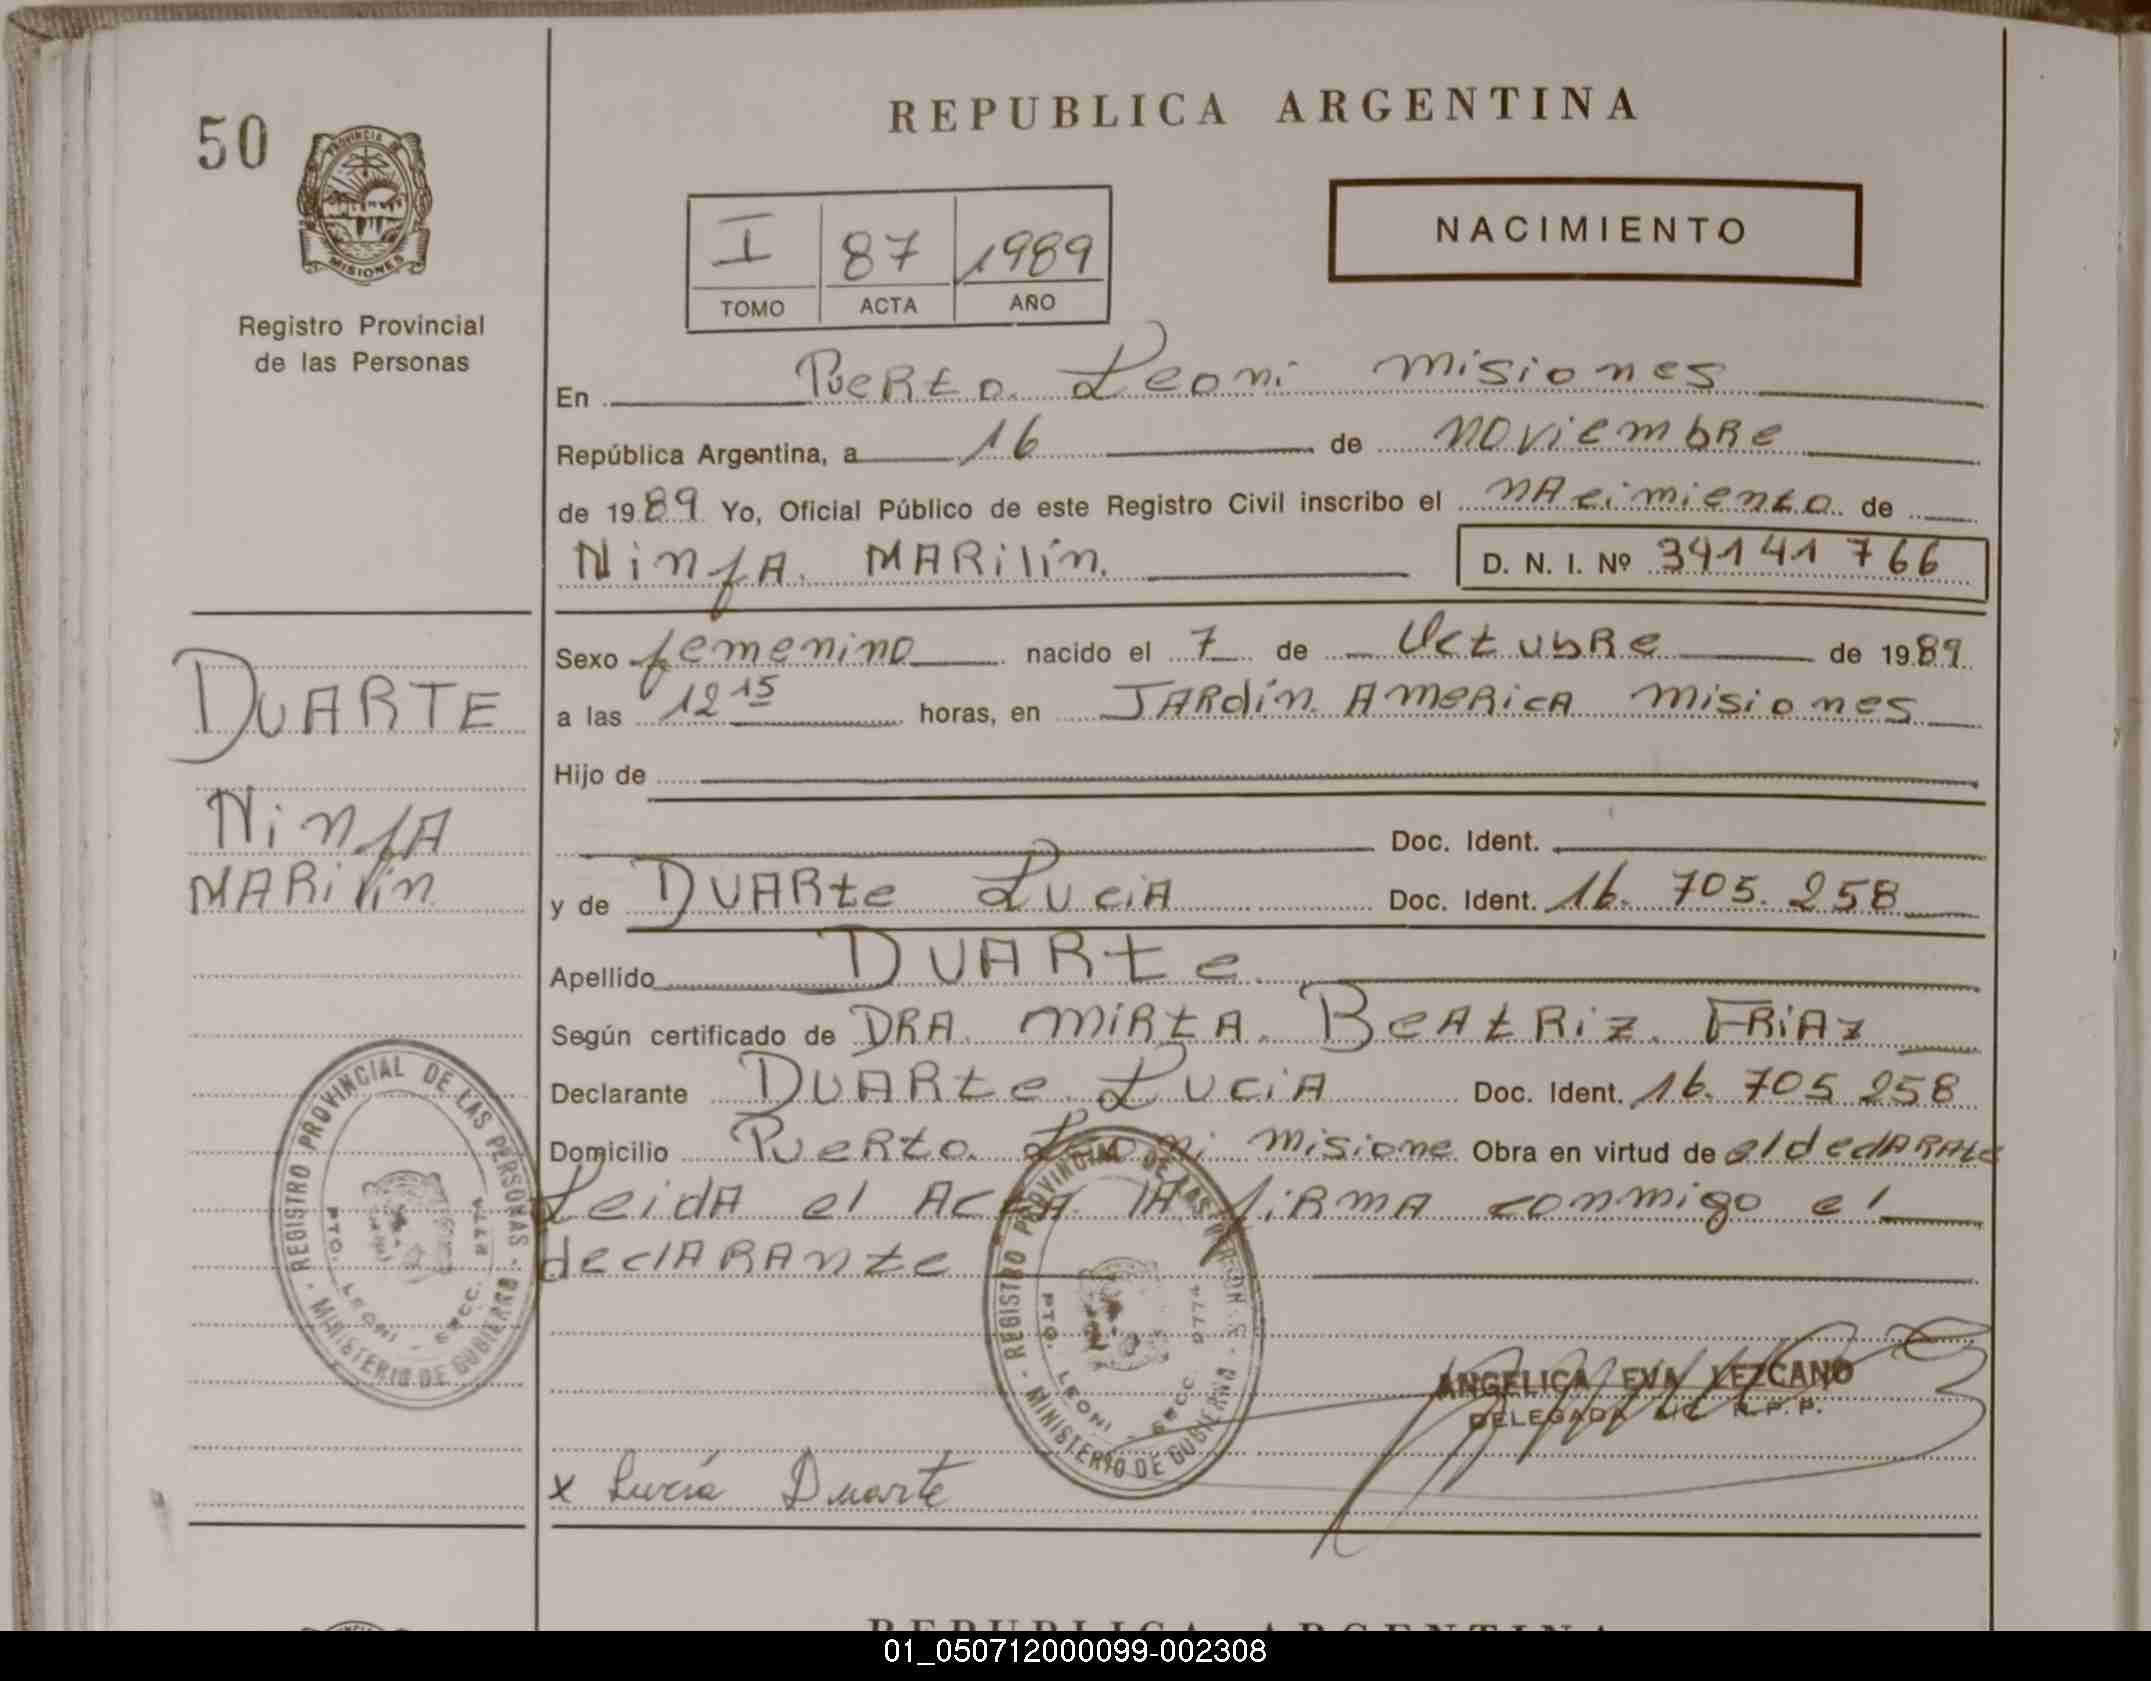 50
PROVINCIA DE
MISIONES
Registro Provincial
de las Personas
REPUBLICA ARGENTINA
I 87 1989
TOMO ACTA AÑO
NACIMIENTO
En Puerto Leoni misiones
República Argentina, a 16 de noviembre
de 1989 Yo, Oficial Público de este Registro Civil inscribo el nacimiento de
Ninfa Marilín. D. N. I. Nº 34141766
Sexo femenino nacido el 7 de Octubre de 1989
a las 12 15 horas, en Jardín America misiones
Hijo de
Doc. Ident.
y de Duarte Lucia Doc. Ident. 16.705.258
Apellido Duarte
Según certificado de DRA. Mirta Beatriz Friaz
Declarante Duarte Lucia Doc. Ident. 16.705 258
Domicilio Puerto Leoni misione Obra en virtud de
Leida el Acta la firma conmigo el
declarante
DUARTE
Ninfa
Marilín
REGISTRO PROVINCIAL DE LAS PERSONAS
MINISTERIO DE GOBIERNO
PTO. LEONI - SECC. 2774
REGISTRO PROVINCIAL DE LAS PERSON.S
MINISTERIO DE GOBIERNO
PTO. LEONI - SECC. 2774
ANGELICA EVA LEZCANO
DELEGADA R.P.P.
x Lucía Duarte
REPUBLICA ARGENTINA
01_050712000099-002308